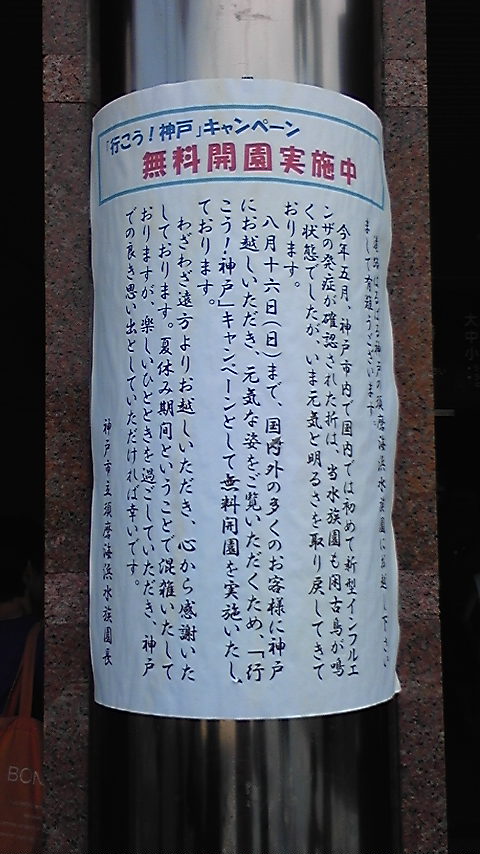 「行こう！神戸」キャンペーン
無料開園実施中
神戸の須磨海浜水族園にお越し下さい
まして有難うございます。
今年五月、神戸市内で国内では初めて新型インフルエ
ンザの発症が確認された折は、当水族園も閑古鳥が鳴
く状態でしたが、いま元気と明るさを取り戻してきて
おります。
八月十六日(日)まで、国内外の多くのお客様に神戸
にお越しいただき、元気な姿をご覧いただくため、「行
こう！神戸」キャンペーンとして無料開園を実施いたし
ております。
わざわざ遠方よりお越しいただき、心から感謝いた
しております。夏休み期間ということで混雑いたして
おりますが、楽しいひとときを過ごしていただき、神戸
での良き思い出としていただければ幸いです。
神戸市立須磨海浜水族園長
大中小
BON